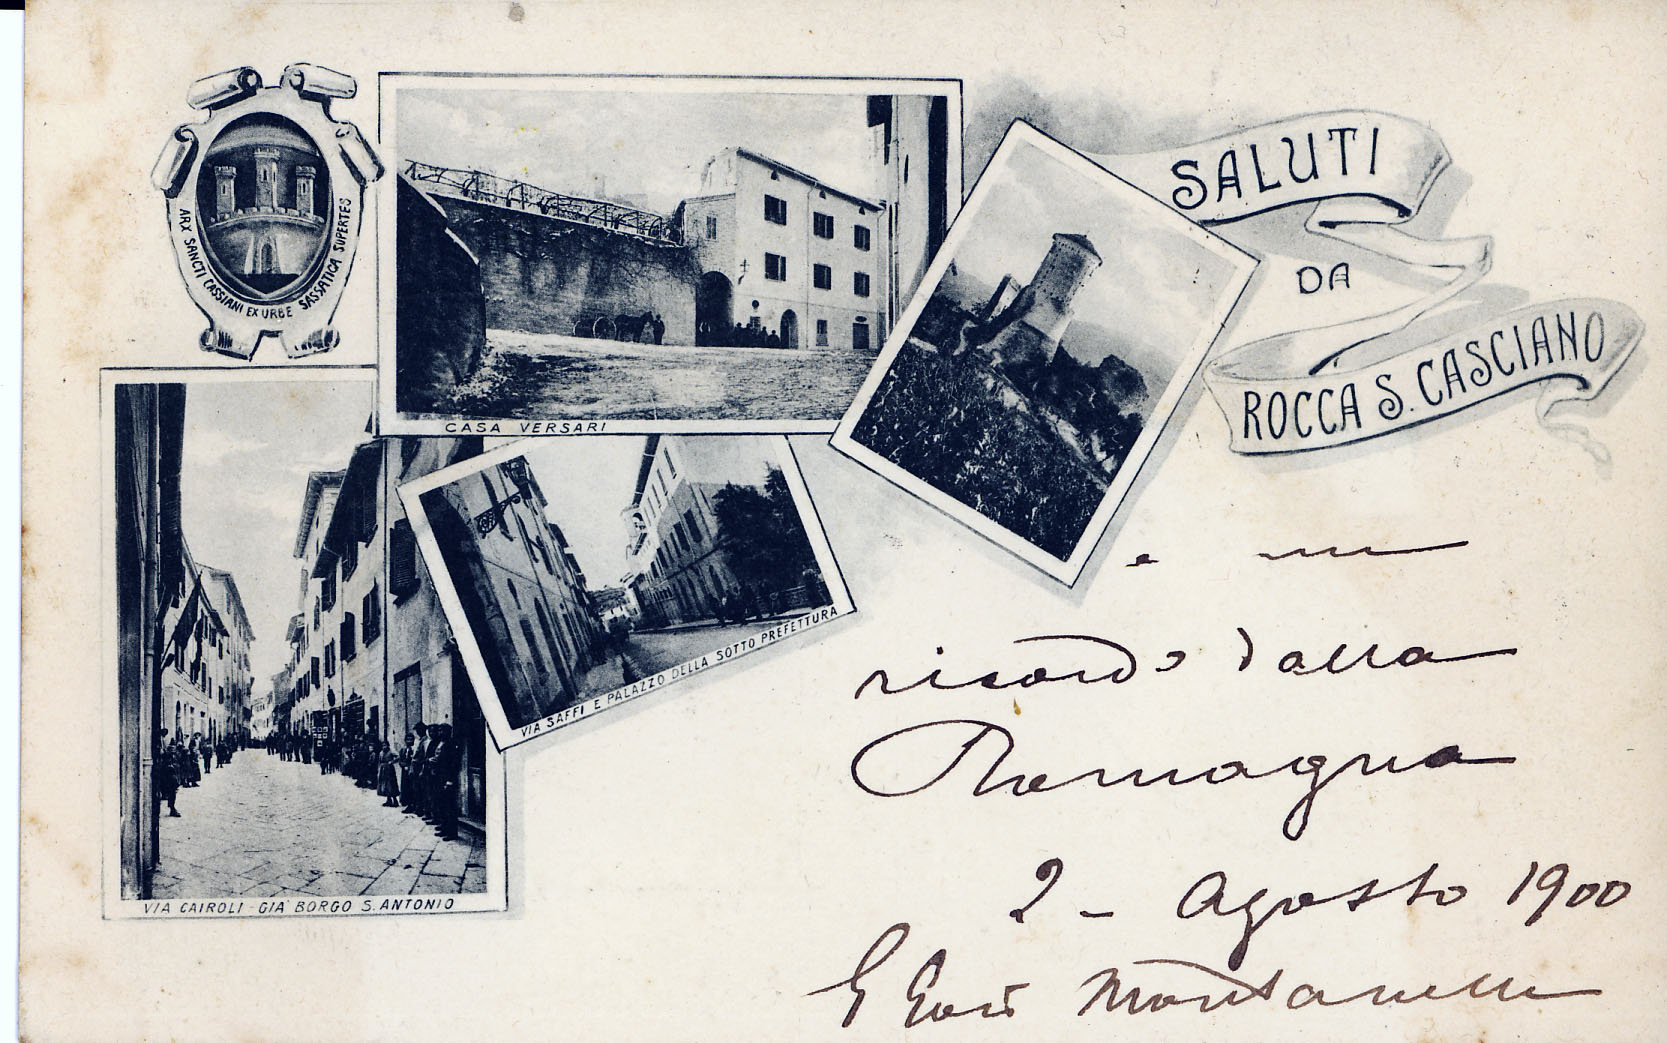 SALUTI
DA
ROCCA S. CASCIANO
ARX SANCTI CASSIANI EX URBE SASSATICA SUPERTES
CASA VERSARI
VIA SAFFI E PALAZZO DELLA SOTTO PREFETTURA
VIA CAIROLI - GIA' BORGO S. ANTONIO
e un
ricordo dalla
Romagna
2 - Agosto 1900
Montanelli